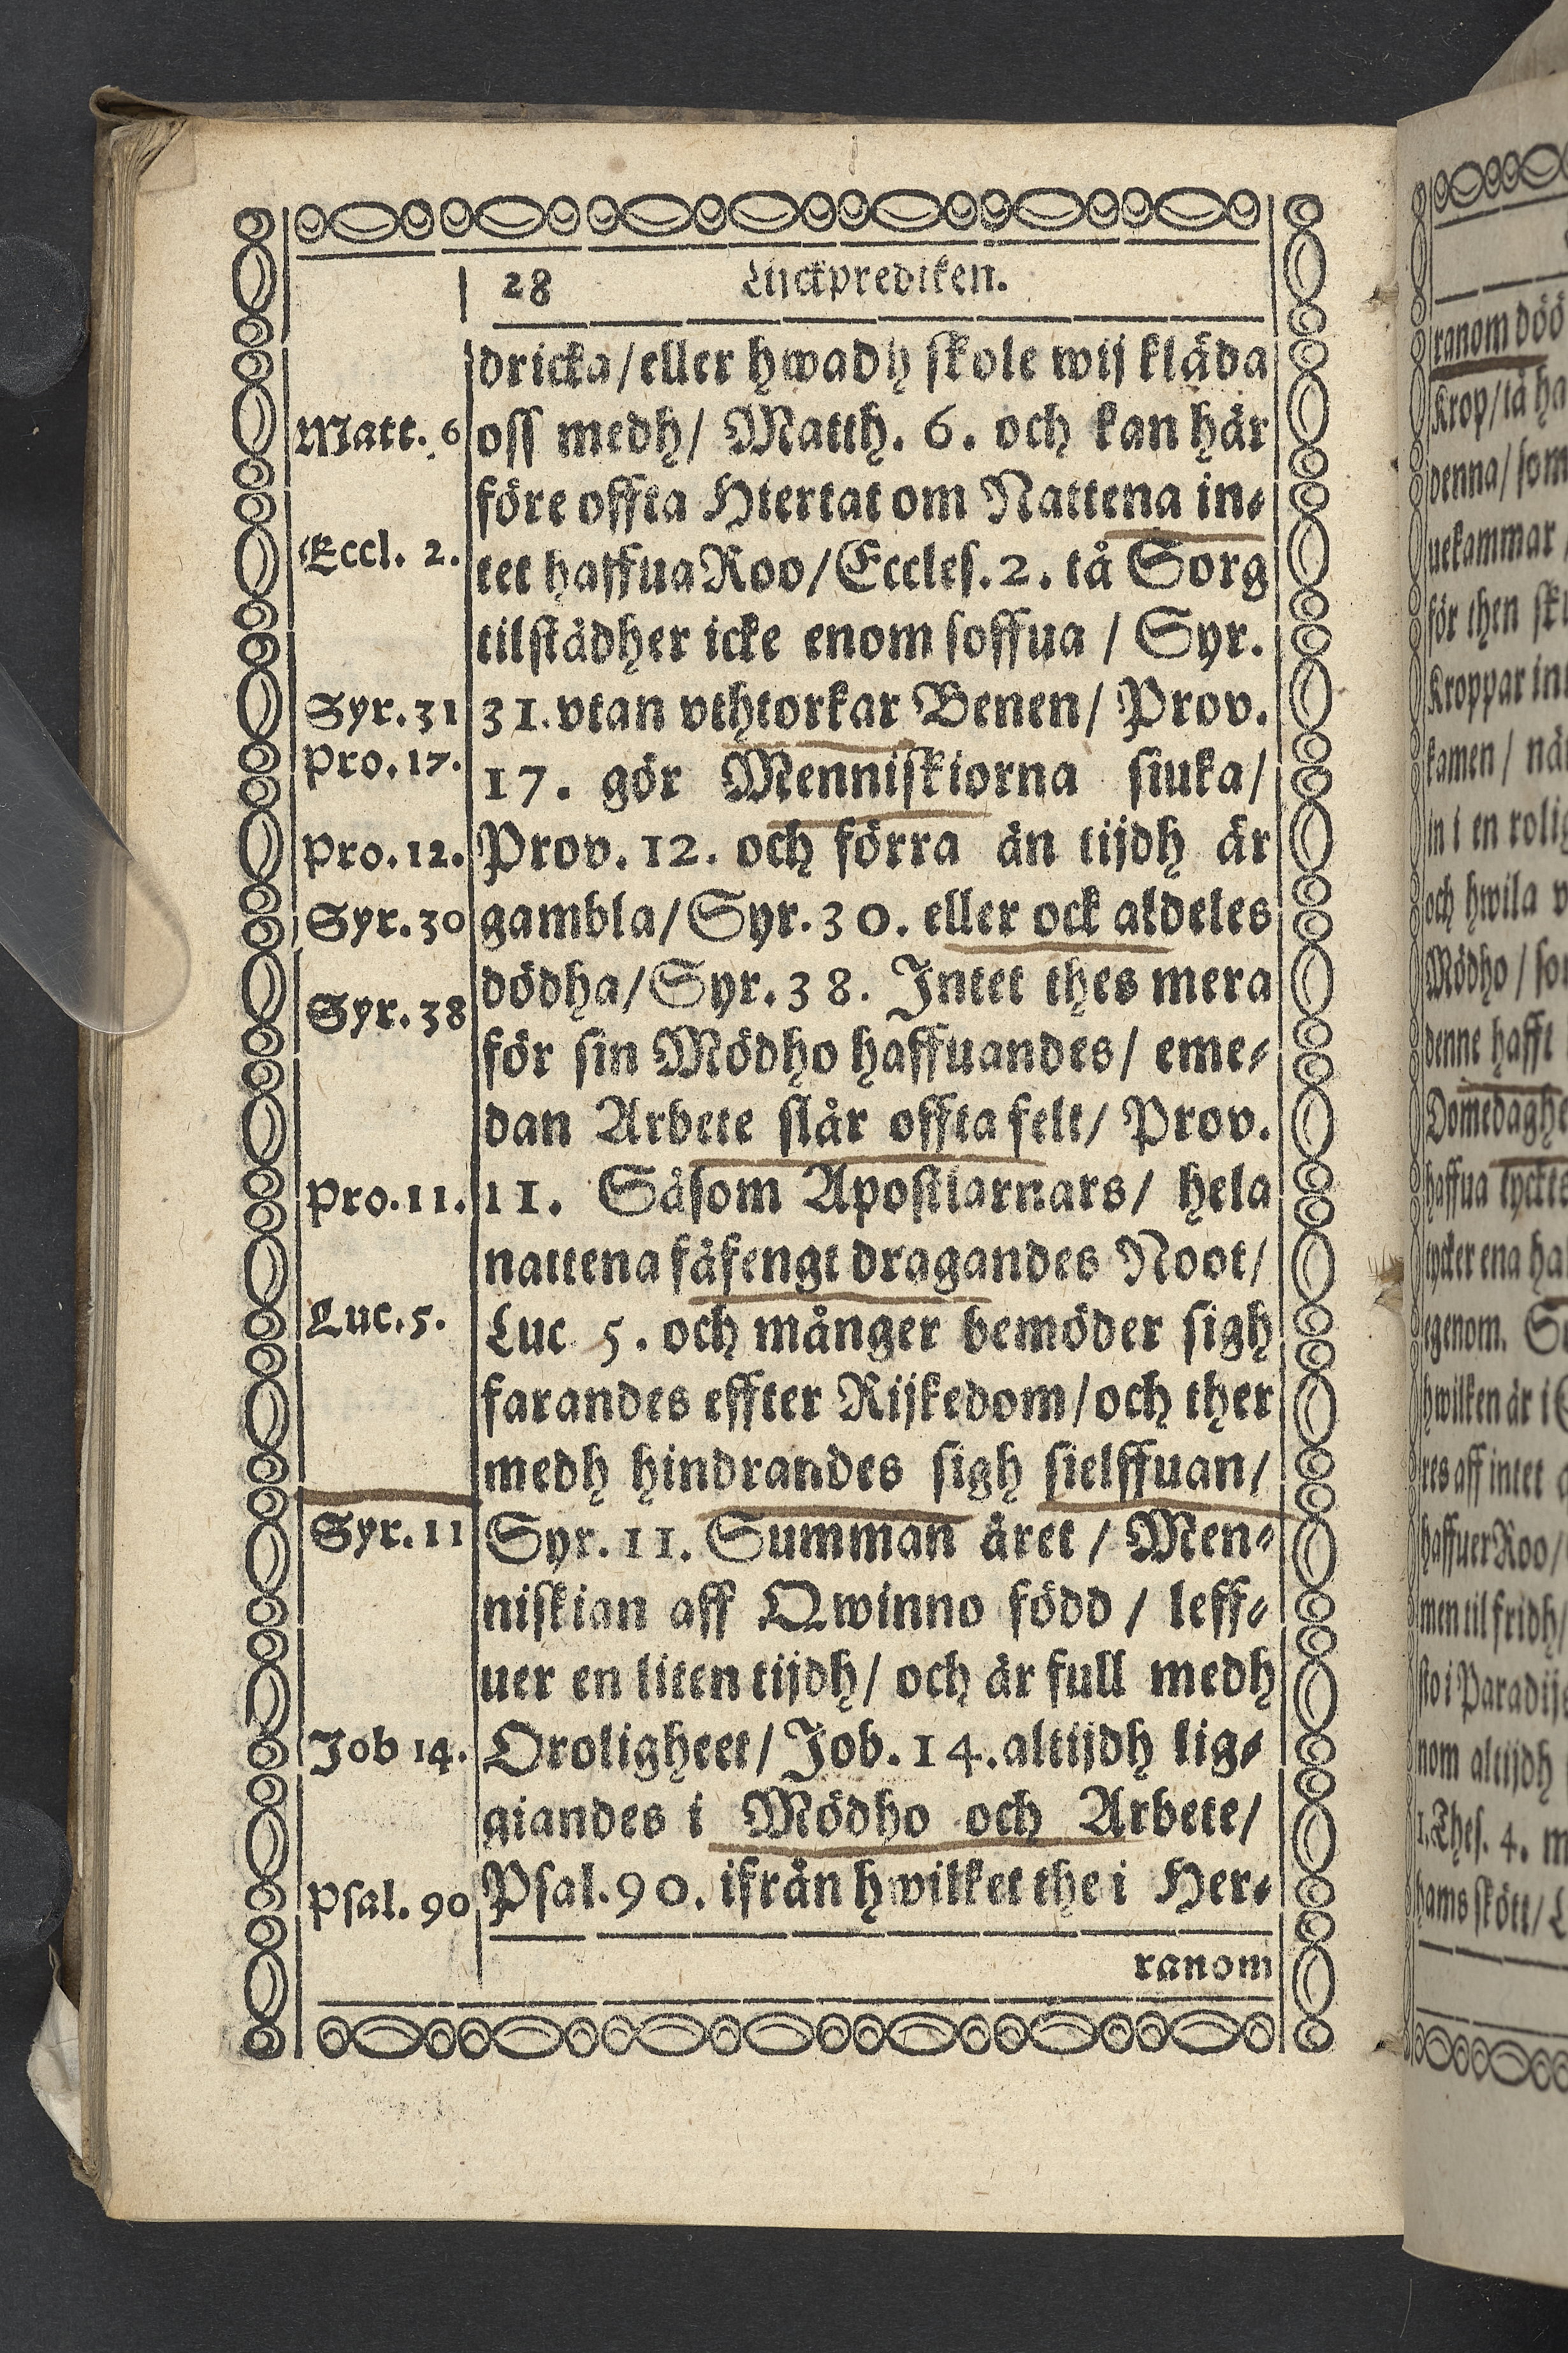 28 Lijckprediken.
dricka/eller hwadh skole wij kläda
Matt. 6
oss medh/ Matth. 6. och kan här
före offta Hiertat om Nattena in-
Eccl. 2.
tet haffua Roo/Eccles. 2. tå Sorg
tilstädher icke enom soffua / Syr.
Syr. 31
31. vtan vthtorkar Benen/ Prov.
Pro. 17.
17. gör Menniskiorna siuka/
Pro. 12.
Prov. 12. och förra än tijdh är
Syr. 30
gambla/Syr. 30. eller ock aldeles
Syr. 38
dödha/Syr. 38. Intet thes mera
för sin Mödho haffuandes/ eme-
dan Arbete slår offta felt/ Prov.
Pro. 11.
11. Såsom Apostlarnars/ hela
nattena fåfengt dragandes Noot/
Luc. 5.
Luc 5. och månger bemöder sigh
farandes effter Rijkedom/och ther
medh hindrandes sigh sielffuan/
Syr. 11
Syr. 11. Summan äret / Men-
niskian aff Qwinno född / leff-
uer en liten tijdh/ och är full medh
Job 14.
Oroligheet/ Job. 14. altijdh lig-
giandes i Mödho och Arbete/
Psal. 90
Psal. 90. ifrån hwilket the i Her-
ranom
ranom döö
Krop/tå ha
denna/ som
uekammar
för then sk
Kroppar in
kamen / nä
in i en rolig
och hwila
Mödho / so
denne hafft
Domedaghe
haffua tyckts
tycker ena ha
egenom.
hwilken är i
res aff intet
haffuer Roo/
men til fridh/
sto i Paradijs
nom altijdh
1. Thes. 4.
hams skött/